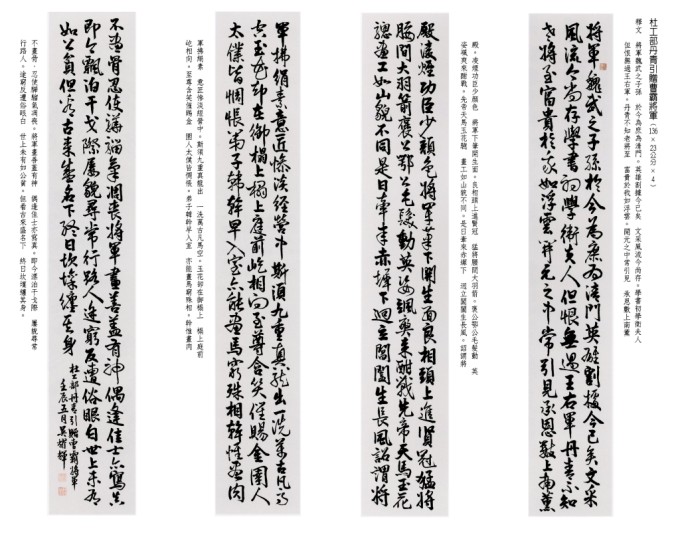 杜工部丹青引贈曹霸將軍（136×23公分×4）
釋文 將軍魏武之子孫 於今為庶為清門。英雄割據今已矣 文采風流今尚存。學書初學衛夫人
但恨無過王右軍。丹青不知老將至 富貴於我如浮雲。開元之中常引見 承恩數上南薰
將軍魏武之子孫於今為庶為清門英雄割據今已矣文采
風流今尚存學書初學衛夫人但恨無過王右軍丹青不知
老將至富貴於我如浮雲開元之中常引見承恩數上南薰
殿。凌煙功臣少顏色 將軍下筆開生面。良相頭上進賢冠 猛將腰間大羽箭。褒公鄂公毛髮動 英
姿颯爽來酣戰。先帝天馬玉花驄 畫工如山貌不同。是日牽來赤墀下 迥立閶闔生長風。詔謂將
殿凌煙功臣少顏色將軍筆下開生面良相頭上進賢冠猛將
腰間大羽箭褒公鄂公毛髮動英姿颯爽來酣戰先帝天馬玉花
驄畫工如山貌不同是日牽來赤墀下迴立閶闔生長風詔謂將
軍拂絹素 意匠慘淡經營中。斯須九重真龍出 一洗萬古凡馬空。玉花卻在御榻上 榻上庭前
屹相向。至尊含笑催賜金 圉人太僕皆惆悵。弟子韓幹早入室 亦能畫馬窮殊相。幹惟畫肉
軍拂絹素意匠慘淡經營中斯須九重真龍出一洗萬古凡馬
空玉花却在御榻上榻上庭前屹相向至尊含笑催賜金圉人
太僕皆惆悵弟子韓幹早入室亦能畫馬窮殊相幹惟畫肉
不畫骨。忍使驊騮氣凋喪。將軍畫善蓋有神 偶逢佳士亦寫真。即今漂泊干戈際 屢貌尋常
行路人。途窮反遭俗眼白 世上未有如公貧。但看古來盛名下 終日坎壈纏其身。
不畫骨忍使驊騮氣凋喪將軍畫善蓋有神偶逢佳士亦寫真
即今飄泊干戈際屢貌尋常行路人途窮反遭俗眼白世上未有
如公貧但看古來盛名下終日坎壈纏其身
杜工部丹青引贈曹霸將軍
壬辰五月吳